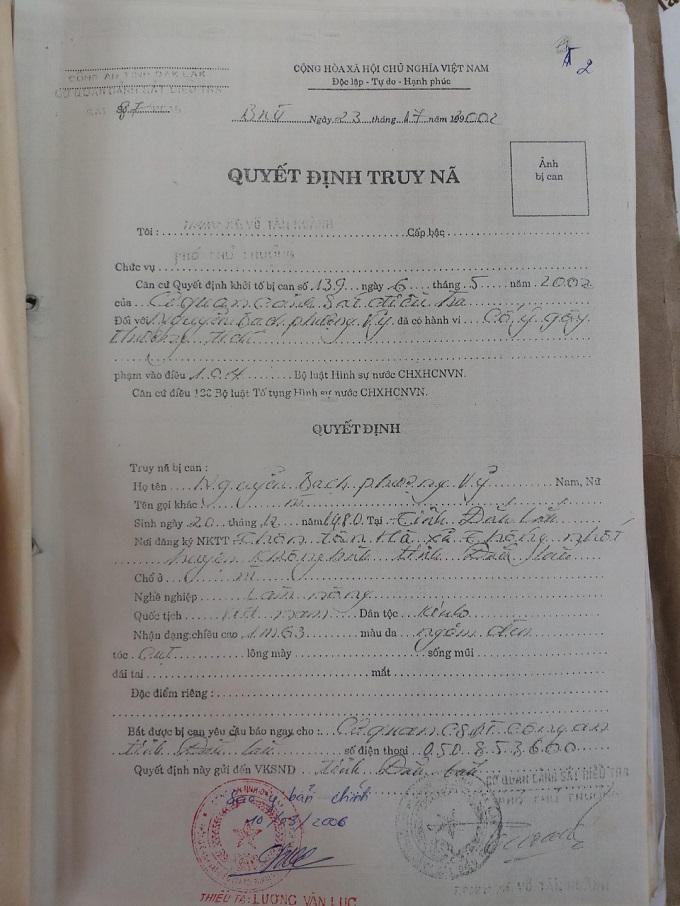 2
CÔNG AN TỈNH ĐAK LAK
CỘNG HÒA XÃ HỘI CHỦ NGHĨA VIỆT NAM
Độc lập - Tự do - Hạnh phúc
CƠ QUAN CẢNH SÁT ĐIỀU TRA
Ngày 23 tháng năm 2002
QUYẾT ĐỊNH TRUY NÃ
Ảnh
bị can
Tôi : Cấp bậc
PHÓ THỦ TRƯỞNG
Chức vụ
Căn cứ Quyết định khởi tố bị can số 139 ngày 6 tháng 5 năm 2002
của Cơ quan cảnh sát điều tra
Đối với Nguyễn Bạch Phương Vỹ đã có hành vi Cố ý gây
thương tích
phạm vào điều 104 Bộ luật Hình sự nước CHXHCNVN.
Căn cứ điều Bộ luật Tố tụng Hình sự nước CHXHCNVN.
QUYẾT ĐỊNH
Truy nã bị can :
Họ tên Nguyễn Bạch Phương Vỹ Nam, Nữ
Tên gọi khác
Sinh ngày 20 tháng 12 năm 1980 Tại Tỉnh Đắk Lắk
Nơi đăng ký NKTT Thôn tân Hà xã thống nhất
huyện Krông búk tỉnh Đắk Lắk
Chỗ ở
Nghề nghiệp Làm nông
Quốc tịch Việt nam Dân tộc Kinh
Nhận dạng: chiều cao 1m63 màu da ngăm đen
tóc cụt lông mày sống mũi
dái tai mắt
Đặc điểm riêng :
Bắt được bị can yêu cầu báo ngay cho : Cơ quan CSĐT công an
tỉnh Đắk Lắk số điện thoại 050.853600
Quyết định này gửi đến VKSND tỉnh Đắk Lắk
CƠ QUAN CẢNH SÁT ĐIỀU TRA
PHÓ THỦ TRƯỞNG
Sao y bản chính
10/03/2006
THIẾU TÁ: LƯƠNG VĂN LỰC